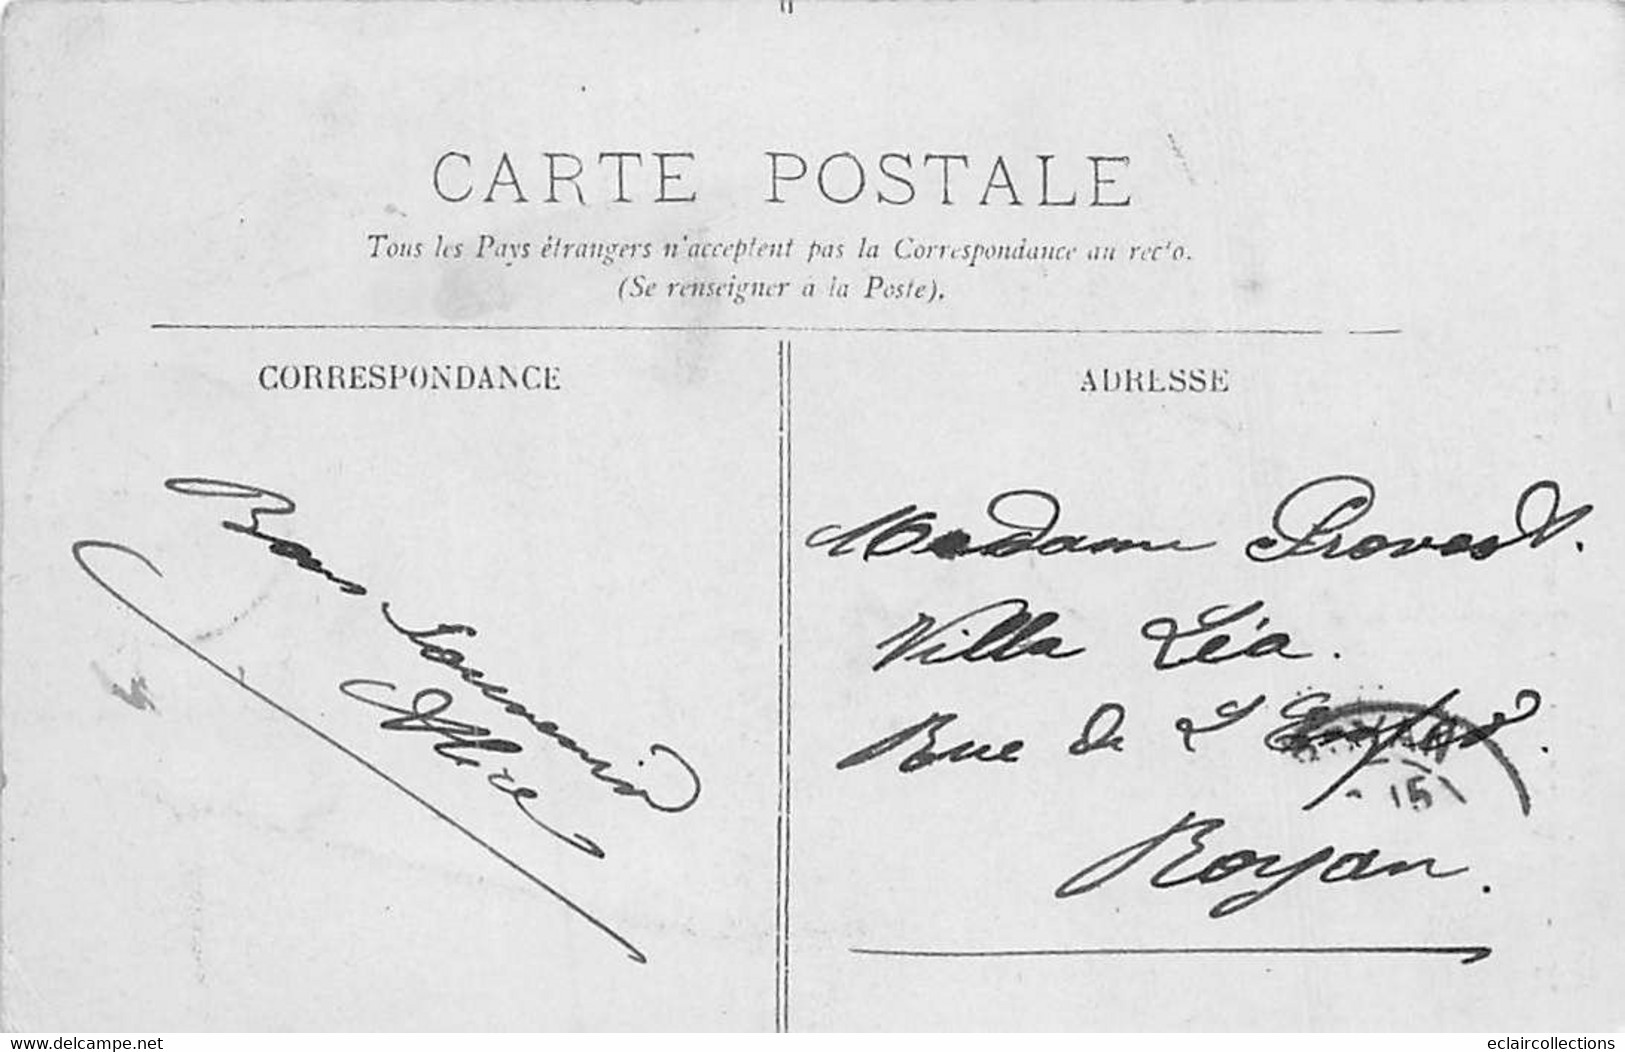 CARTE POSTALE
Tous les Pays étrangers n'acceptent pas la Correspondance au recto.
(Se renseigner à la Poste).
CORRESPONDANCE
ADRESSE
Bons Souvenirs
Alice
Madame Provost.
Villa Léa.
Rue de L
Royan.
15
www.delcampe.net
eclaircollections